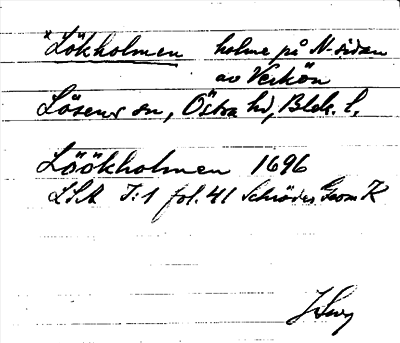 *Lökholmen holme på N-sidan
av Verkön
Lösens sn, Östra hd, Blek. l.
Löökholmen 1696
LSA I:1 fol. 41 Schröders Geom K